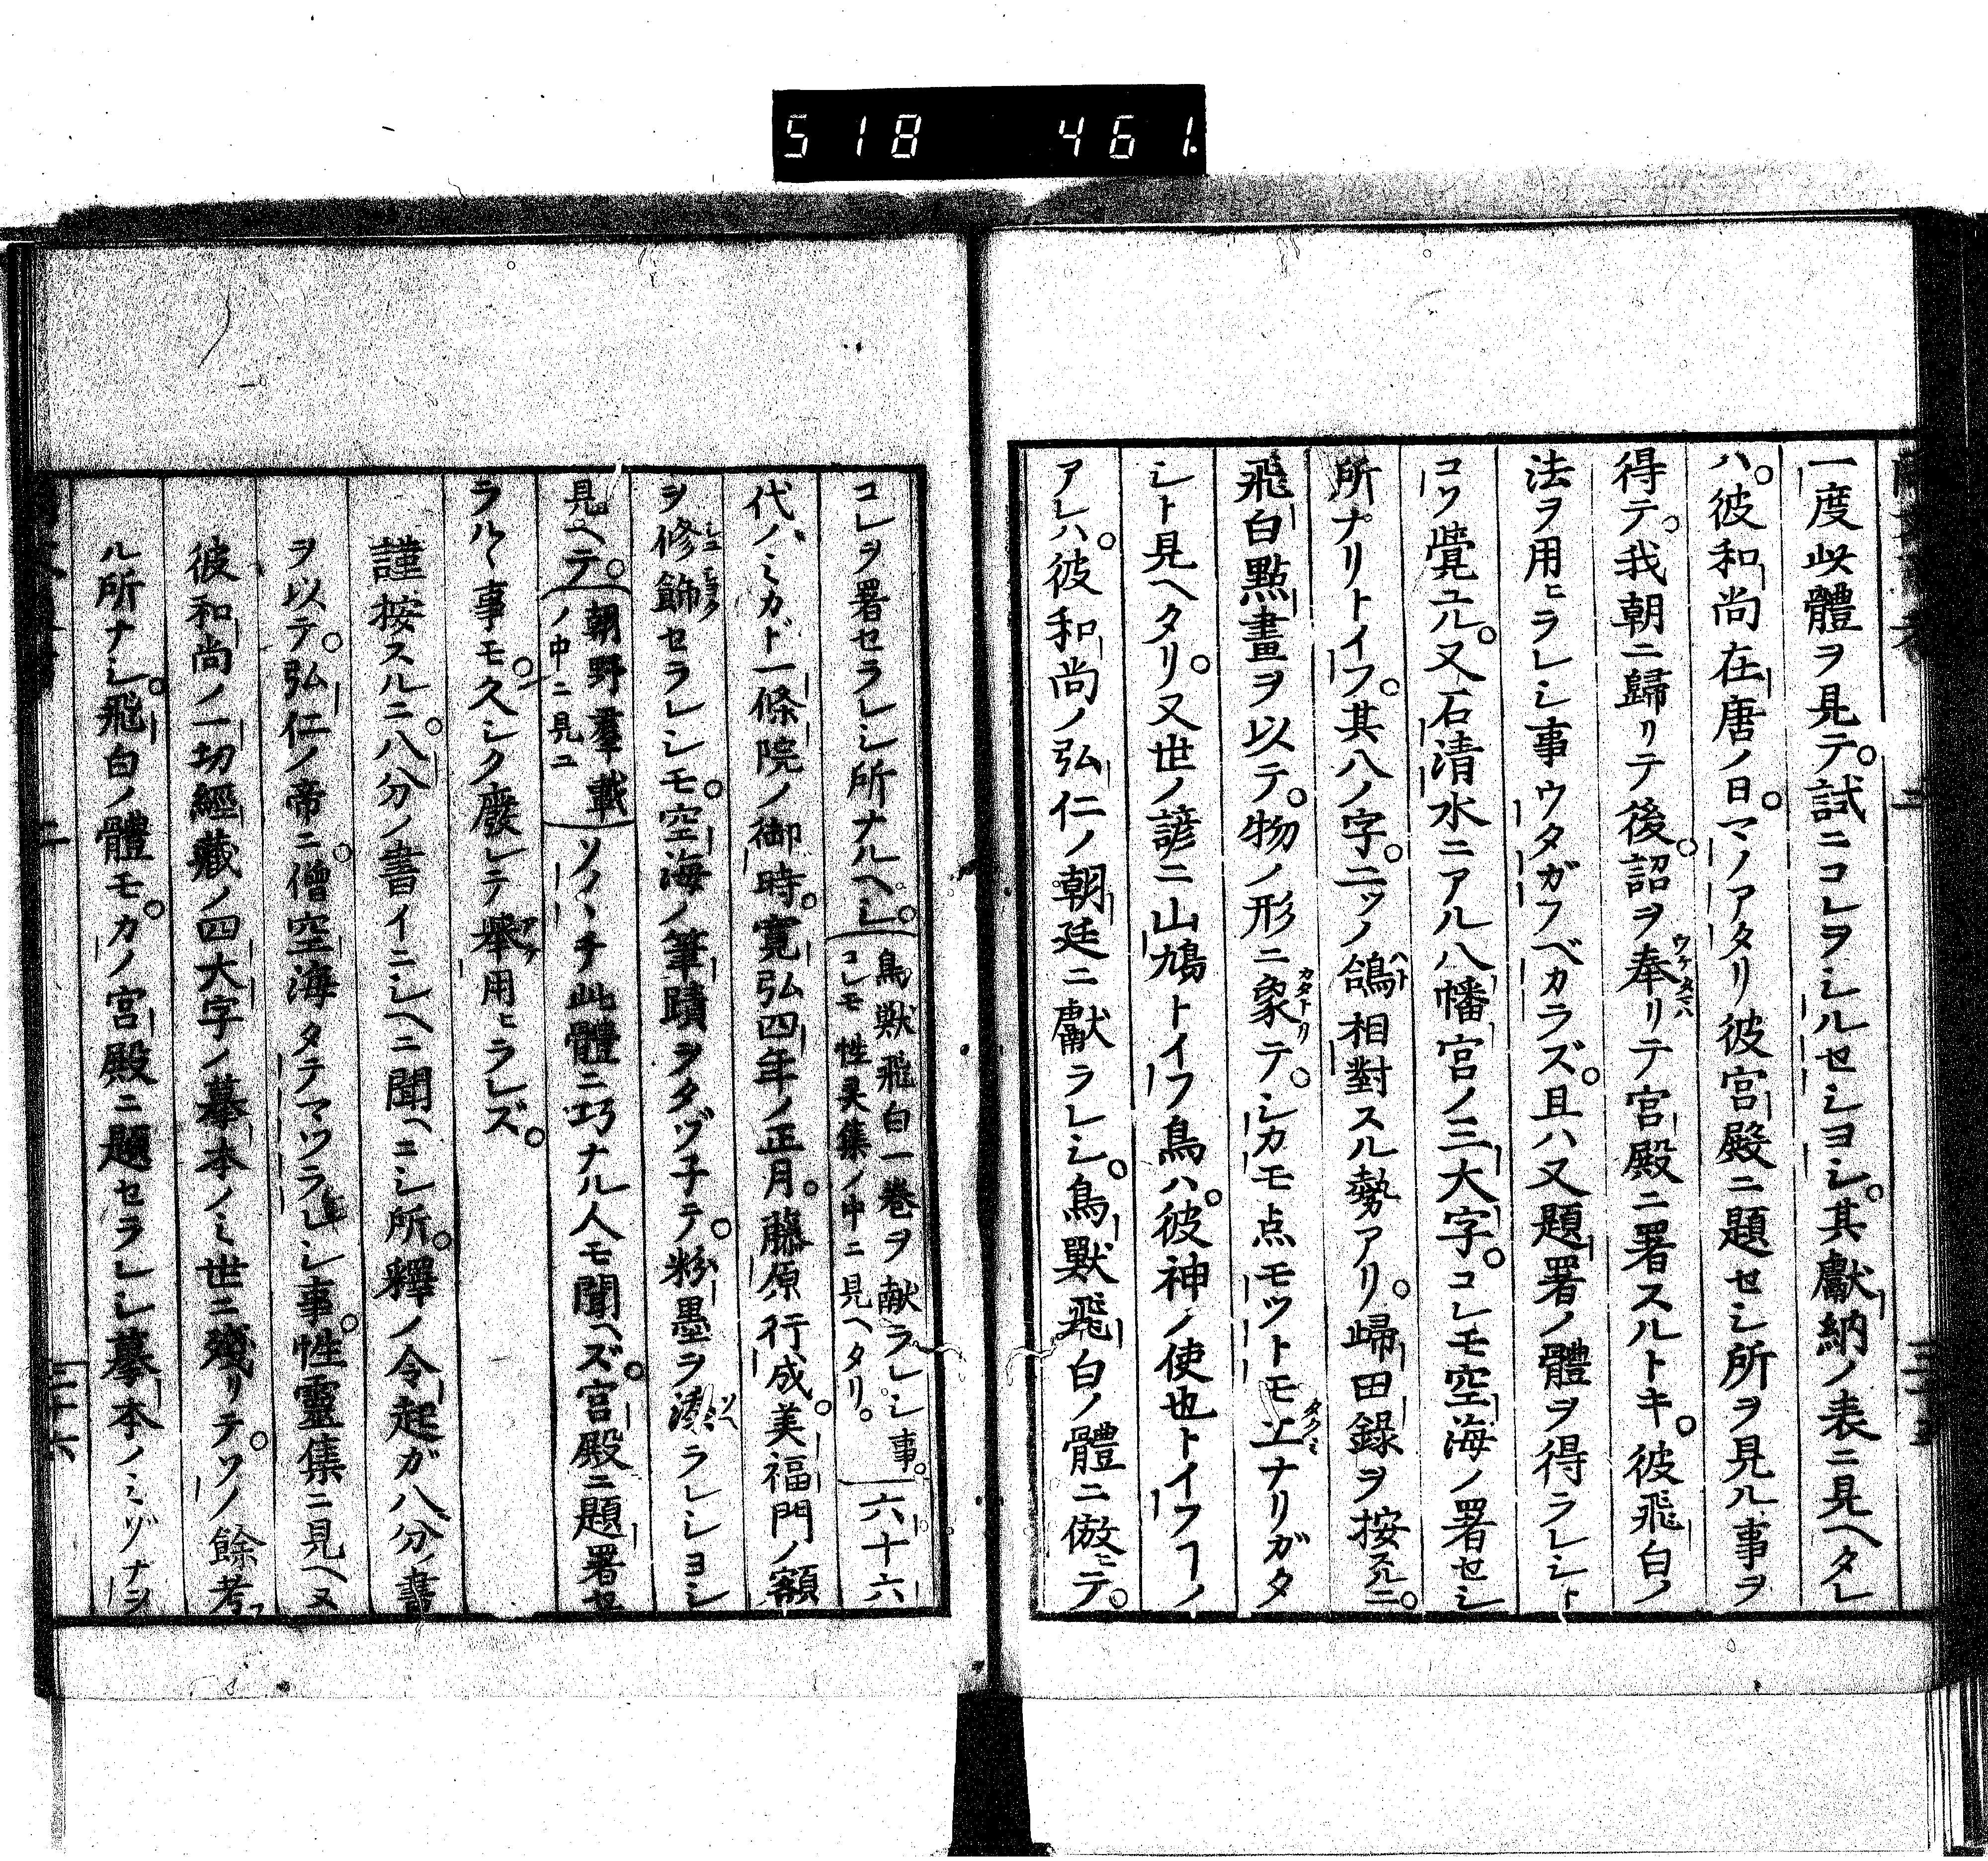 518 461
一度此體ヲ見テ。試ニコレヲシルセシヨシ。其獻納ノ表ニ見ヘタレ
ハ。彼和尚在唐ノ日。マノアタリ彼宮殿ニ題セシ所ヲ見ル事ヲ
得テ。我朝ニ歸リテ後。詔ヲ奉リテ宮殿ニ署スルトキ。彼飛白ノ
法ヲ用ヒラレシ事ウタガフベカラズ。且ハ又題署ノ體ヲ得ラレシト
コソ覺ユル。又石清水ニアル八幡宮ノ三大字。コレモ空海ノ署セシ
所ナリトイフ。其八ノ字。二ツノ鴿相對スル勢アリ。歸田録ヲ按スルニ。
飛白點畫ヲ以テ。物ノ形ニ象テ。シカモ点モツトモ工ナリガタ
シト見ヘタリ。又世ノ諺ニ山鳩トイフ鳥ハ。彼神ノ使也トイフフーノ
アレハ。彼和尚ノ弘仁ノ朝廷ニ獻ラレシ。鳥獸飛白ノ體ニ倣ヒテ。
コレヲ署セラレシ所ナルヘシ。鳥獣飛白一巻ヲ献ラレシ事。コレモ性灵集ノ中ニ見ヘタリ。六十六
代ノミカド一條院ノ御時。寛弘四年ノ正月。藤原行成。美福門ノ額
ヲ修飾セラレシモ。空海ノ筆蹟ヲタヅ子テ。粉墨ヲ湊ラレシヨシ
見ヘテ。朝野羣載ノ中ニ見ユソノヽチ此體ニ巧ナル人モ聞ヘズ。宮殿ニ題署セ
ラルヽ事モ。久シク廢レテ擧用ヒラレズ。
謹按スルニ。八分ノ書イニシヘニ聞ヘニシ所。釋ノ令起ガ八分ノ書
ヲ以テ。弘仁ノ帝ニ。僧空海タテマツラレシ事。性靈集ニ見ヘヌ
彼和尚ノ一切經藏ノ四大字ノ摹本ノミ世ニ殘リテ。ソノ餘考フ
ル所ナシ。飛白ノ體モ。カノ宮殿ニ題セラレシ摹本ノミゾナヲ